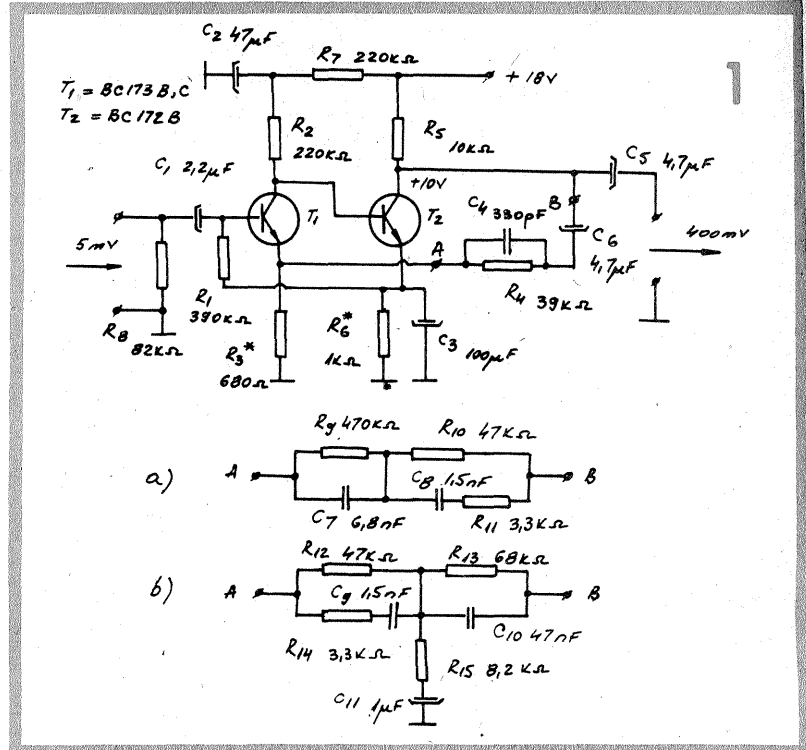 C2 47µF
R7 220KΩ
+ 18V
1
T1 = BC173B,C
T2 = BC172B
R2 220KΩ
R5 10KΩ
C5 4,7µF
C1 2,2µF
+10V
T1
T2
C4 330pF
B
C6 4,7µF
400mV
5mV
A
R4 39KΩ
R1 390KΩ
R8 82KΩ
R3* 680Ω
R6* 1KΩ
C3 100µF
*
R9 470KΩ
R10 47KΩ
a)
A
B
C8 1,5nF
C7 6,8nF
R11 3,3KΩ
R12 47KΩ
R13 68KΩ
b)
A
B
C9 1,5nF
C10 47nF
R14 3,3KΩ
R15 8,2KΩ
C11 1µF